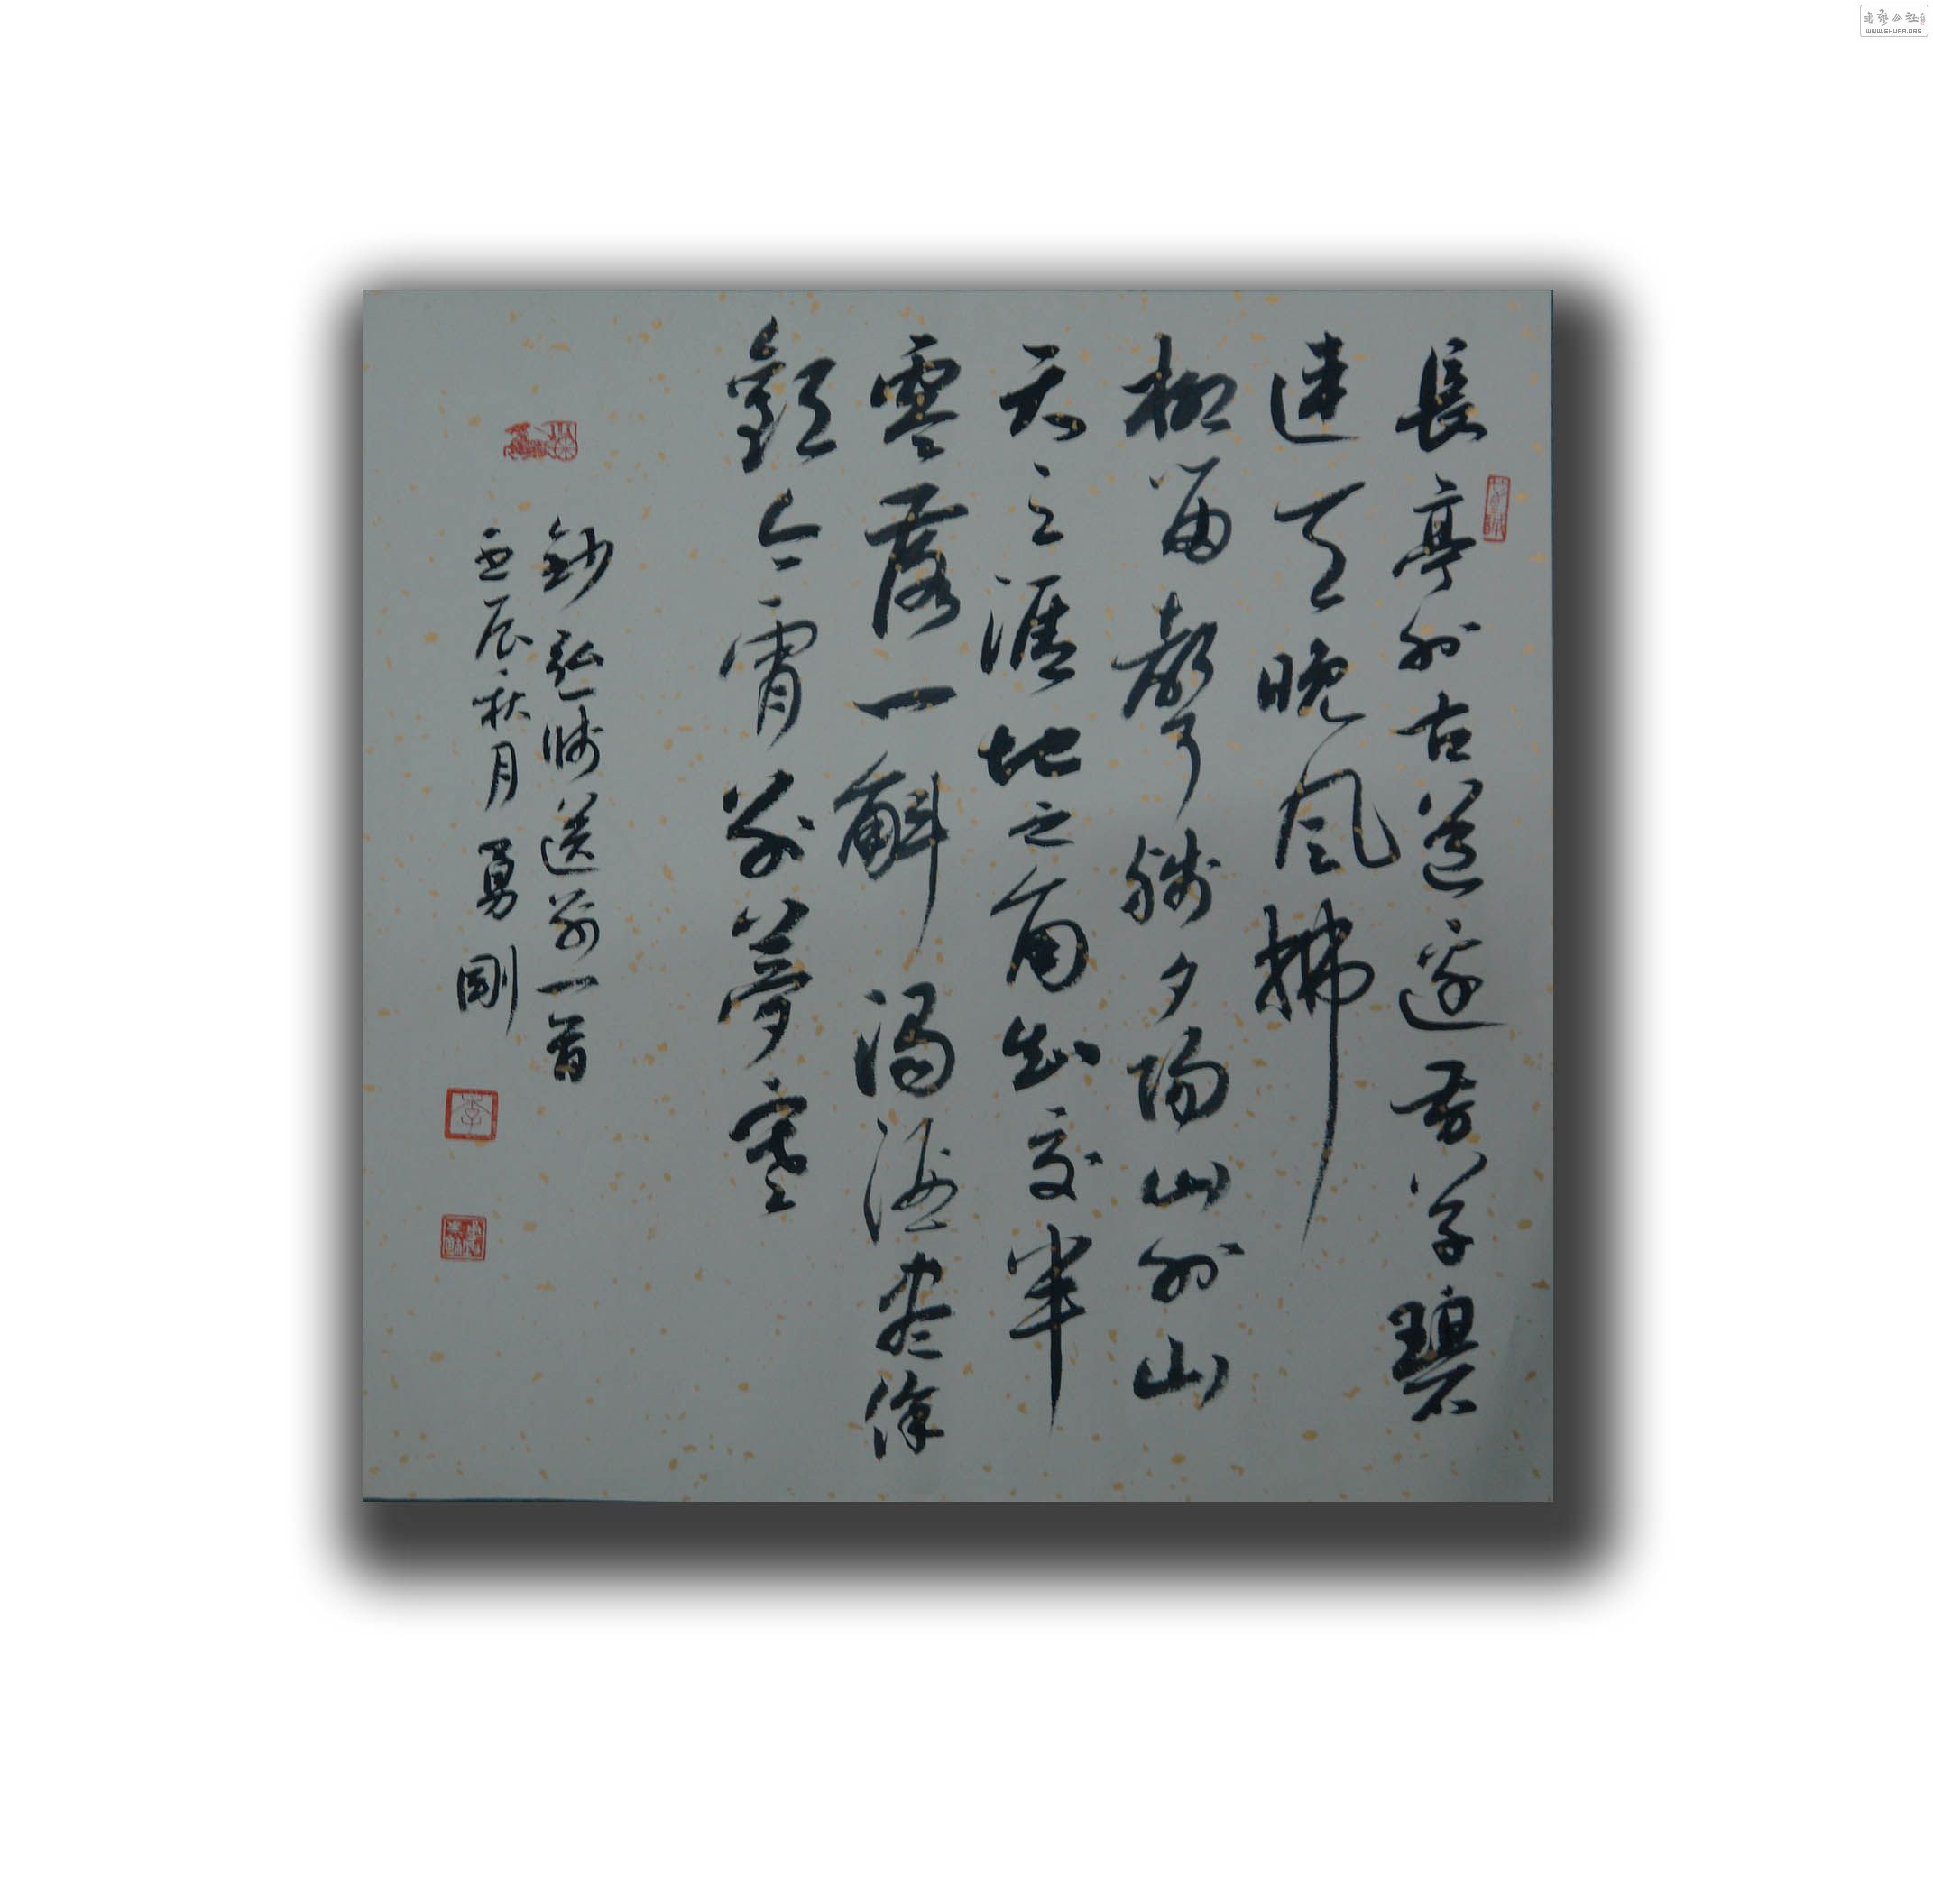 長亭外古道邊芳草碧
連天晚風拂
柳笛聲殘夕陽山外山
天之涯地之角知交半
零落一斛濁酒盡餘
歡今宵別夢寒
鈔弘一師送別一首
壬辰秋月勇剛
李
书艺公社
WWW.SHUFA.ORG